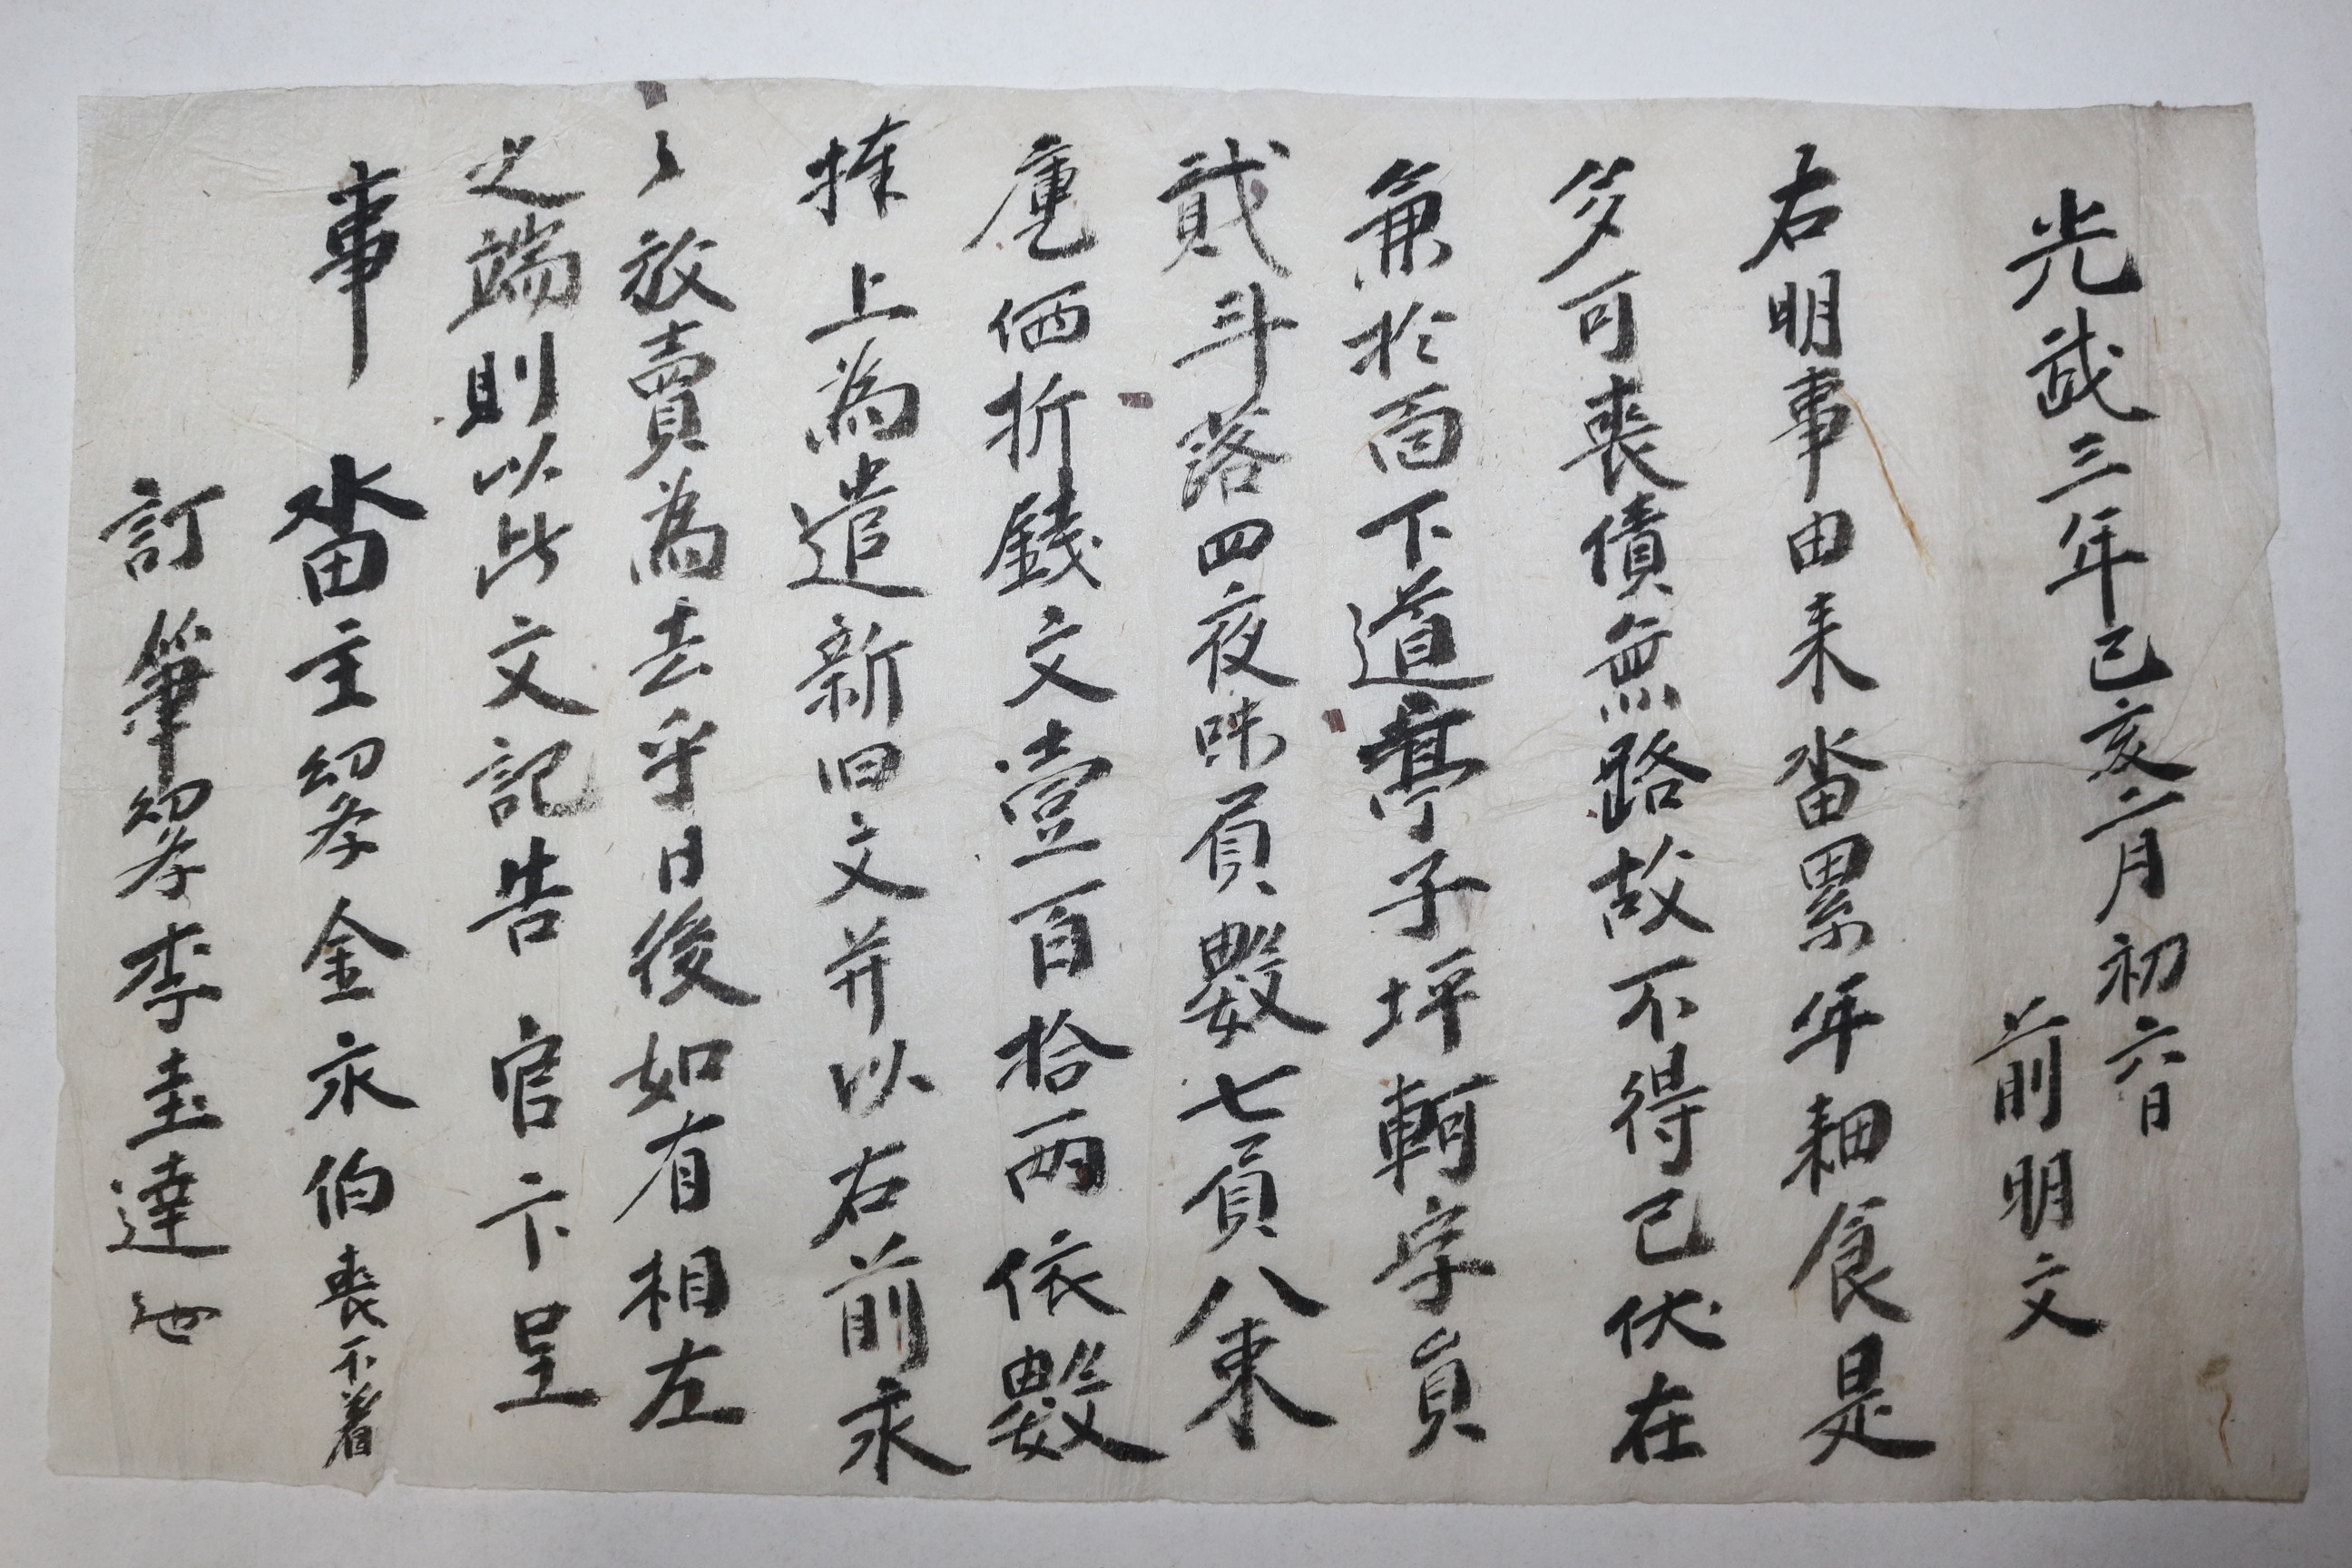 光武三年己亥二月初六日
前明文
右明事由来畓累年耕食是
多可喪債無路故不得已伏在
兼於面下道亭子坪軻字員
貳斗落四夜味員數七負八束
庫価折錢文壹百拾兩依數
捧上為遣新旧文并以右前永
永放賣為去乎日後如有相左
之端則以此文記告官卞呈
事
畓主幼學金永伯喪不着
訂筆幼學李圭達